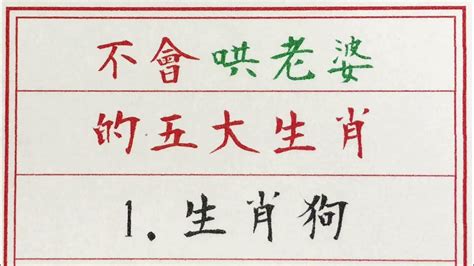 不會哄老婆
的五大生肖
1.生肖狗